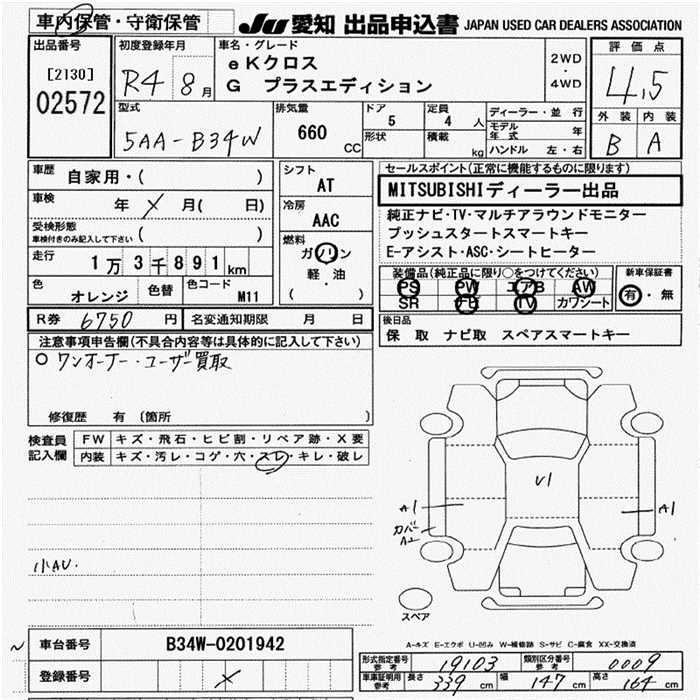 車内保管・守衛保管
JU 愛知 出品申込書 JAPAN USED CAR DEALERS ASSOCIATION
出品番号
[2130]
02572
初度登録年月
R4 8月
車名・グレード
eKクロス
G プラスエディション
2WD
・
4WD
評価点
4.5
外装 内装
B A
型式
5AA-B34W
排気量
660 CC
ドア
5
形状
定員
4人
積載
kg
ディーラー・並行
モデル年式 年
ハンドル 左・右
車歴 自家用・( )
車検 年 × 月( 日)
受検形態
車検付きのみ記入して下さい ( )
走行 1万3千891km
色 オレンジ
色替
色コード M11
シフト
AT
冷房
AAC
燃料
ガソリン
軽・油
( )
セールスポイント(正常に機能するものに限ります)
MITSUBISHIディーラー出品
純正ナビ・TV・マルチアラウンドモニター
プッシュスタートスマートキー
E-アシスト・ASC・シートヒーター
装備品(純正品に限り○をつけてください)
PS PW エアB AW
SR ナビ TV カワシート
新車保証書
有・無
R券 6750円
名変通知期限 月 日
後日品
保 取 ナビ取 スペアスマートキー
注意事項申告欄(不具合内容等は具体的に記入して下さい)
○ ワンオーナー・ユーザー買取
修復歴 有 (箇所 )
検査員記入欄
FW キズ・飛石・ヒビ割・リペア跡・X要
内装 キズ・汚レ・コゲ・穴・スレ・キレ・破レ
小AU.
U1
A1
カバー
A2
A1
スペア
A-キズ E-エクボ U-凹み W-補修跡 S-サビ C-腐食 XX-交換済
車台番号 B34W-0201942
登録番号 ×
型式指定番号 参考 19103
類別区分番号 参考 0009
車庫証明用 参考 長さ 339 cm 幅 147 cm 高さ 164 cm